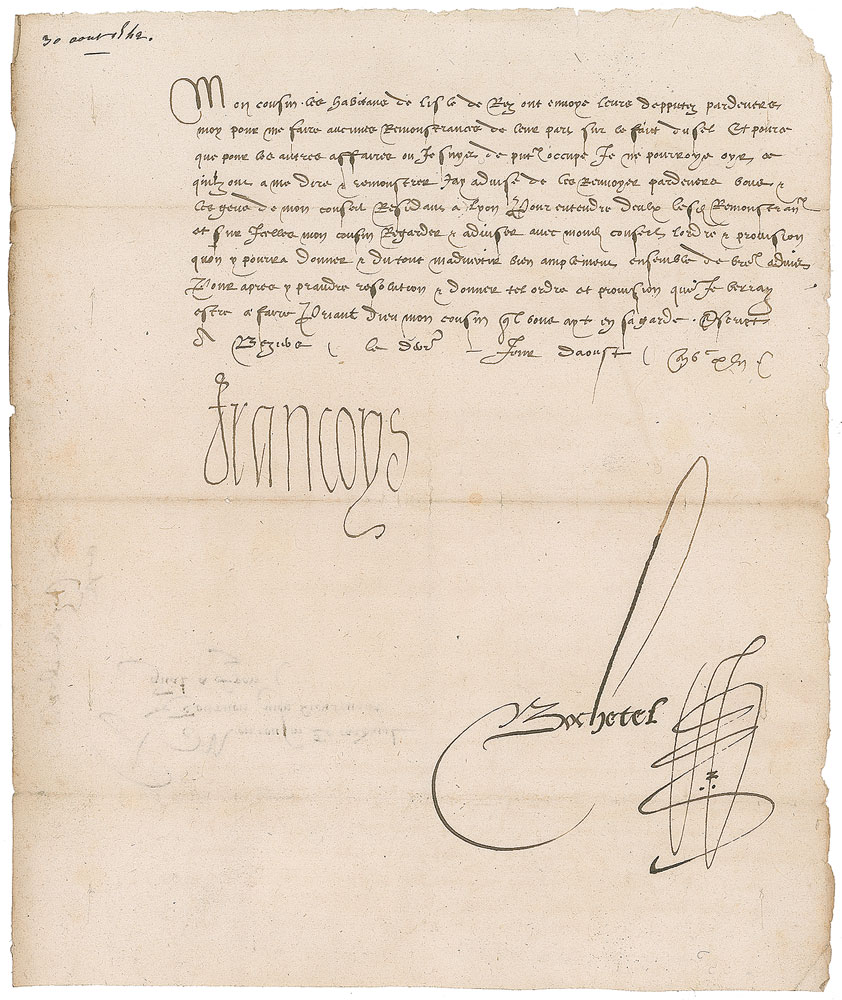 30 aout 1542.
Mon cousin les habitans de lisle de Rez ont envoye leurs depputez pardevers
moy pour me faire aucunes Remonstrances de leur part sur le fait du sel Et pource
que pour les autres affaires ou Je suys de pnt occupe Je ne pourroye oyr ce
quilz ont a me dire & remonstrer Jay advise de les Renvoyer pardevers vous &
les gens de mon conseil Residans a Lyon Pour entendre deulx lesd Remonstran
et sur Icelles mon cousin Regarder & adviser avec mond conseil lordre & provision
quon y pourra donner & du tout madvertir bien amplement ensemble de vre advis
Pour apres y prandre resolution & donner tel ordre et provision que Je verray
estre a faire Priant dieu mon cousin ql vous ayt en sa garde. Escript
A Beziers le Jour daoust xlii
Francoys
Bochetel